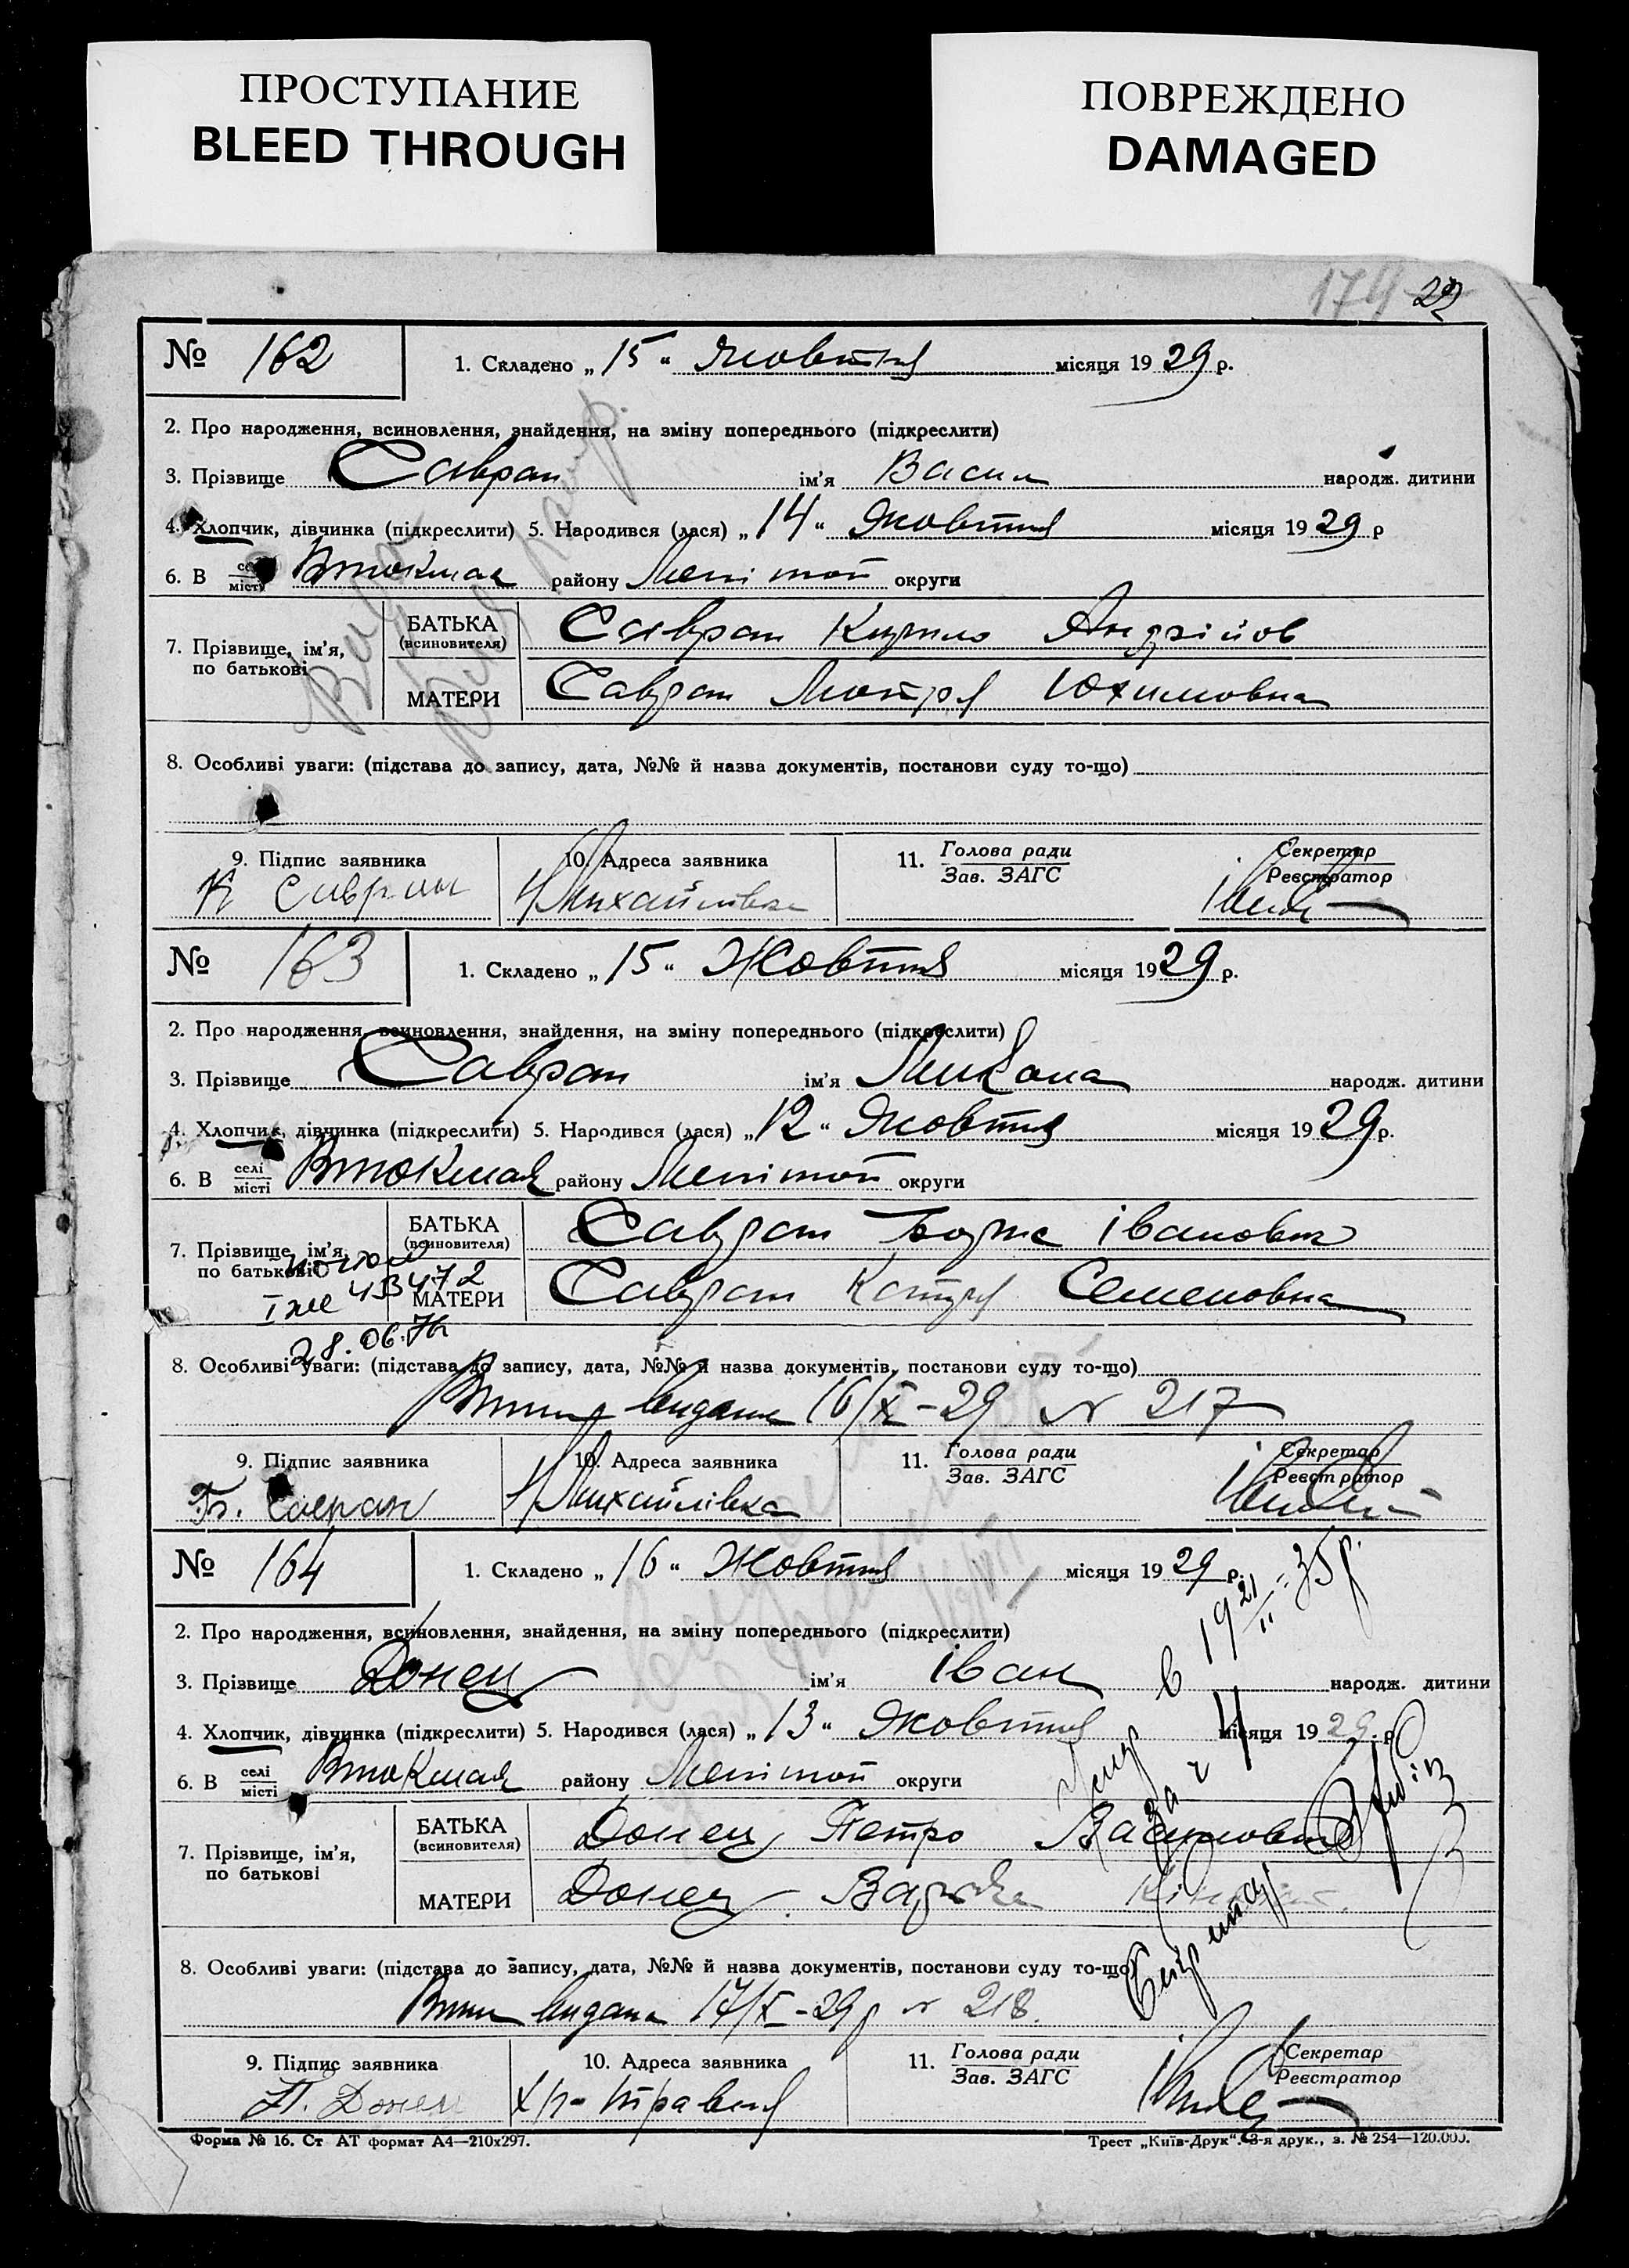 ПРОСТУПАНИЕ
BLEED THROUGH
ПОВРЕЖДЕНО
DAMAGED
174 22
№ 162 1. Складено „ 15 “ Жовтня місяця 19 29 р.
2. Про народження, всиновлення, знайдення, на зміну попереднього (підкреслити)
3. Прізвище Савран ім'я Васил народж. дитини
4. Хлопчик, дівчинка (підкреслити) 5. Народився (лася) „ 14 “ Жовтня місяця 19 29 р
6. В селі місті Втокмак району Мелітоп округи
7. Прізвище, ім'я, по батькові
БАТЬКА (всиновителя) Савран Кирило Андрійов
МАТЕРИ Савран Мотря Юхимовна
8. Особливі уваги: (підстава до запису, дата, №№ й назва документів, постанови суду то-що)
9. Підпис заявника 10. Адреса заявника 11. Голова ради Зав. ЗАГС Секретар Реєстратор
К Савран Михайлівка
№ 163 1. Складено „ 15 “ Жовтня місяця 19 29 р.
2. Про народження, всиновлення, знайдення, на зміну попереднього (підкреслити)
3. Прізвище Савран ім'я Микола народж. дитини
4. Хлопчик, дівчинка (підкреслити) 5. Народився (лася) „ 12 “ Жовтня місяця 19 29 р.
6. В селі місті Втокмак району Мелітоп округи
7. Прізвище, ім'я, по батькові
БАТЬКА (всиновителя) Савран Іванович
МАТЕРИ Савран Катря Семеновна
433472
28.06.76
8. Особливі уваги: (підстава до запису, дата, №№ й назва документів, постанови суду то-що)
видана 16/X-29 N 217
9. Підпис заявника 10. Адреса заявника 11. Голова ради Зав. ЗАГС Секретар Реєстратор
Б. Савран Михайлівка
№ 164 1. Складено „ 16 “ Жовтня місяця 19 29 р.
2. Про народження, всиновлення, знайдення, на зміну попереднього (підкреслити)
3. Прізвище Донец ім'я Іван народж. дитини
4. Хлопчик, дівчинка (підкреслити) 5. Народився (лася) „ 13 “ Жовтня місяця 19 29 р
6. В селі місті Втокмак району Мелітоп округи
7. Прізвище, ім'я, по батькові
БАТЬКА (всиновителя) Донец Петро
МАТЕРИ Донец
8. Особливі уваги: (підстава до запису, дата, №№ й назва документів, постанови суду то-що)
видана 17/X-29 р N 218.
9. Підпис заявника 10. Адреса заявника 11. Голова ради Зав. ЗАГС Секретар Реєстратор
П. Донец
Форма № 16. Ст АТ формат А4—210х297.
Трест „Київ-Друк“. 3-я друк., з. № 254—120.000.